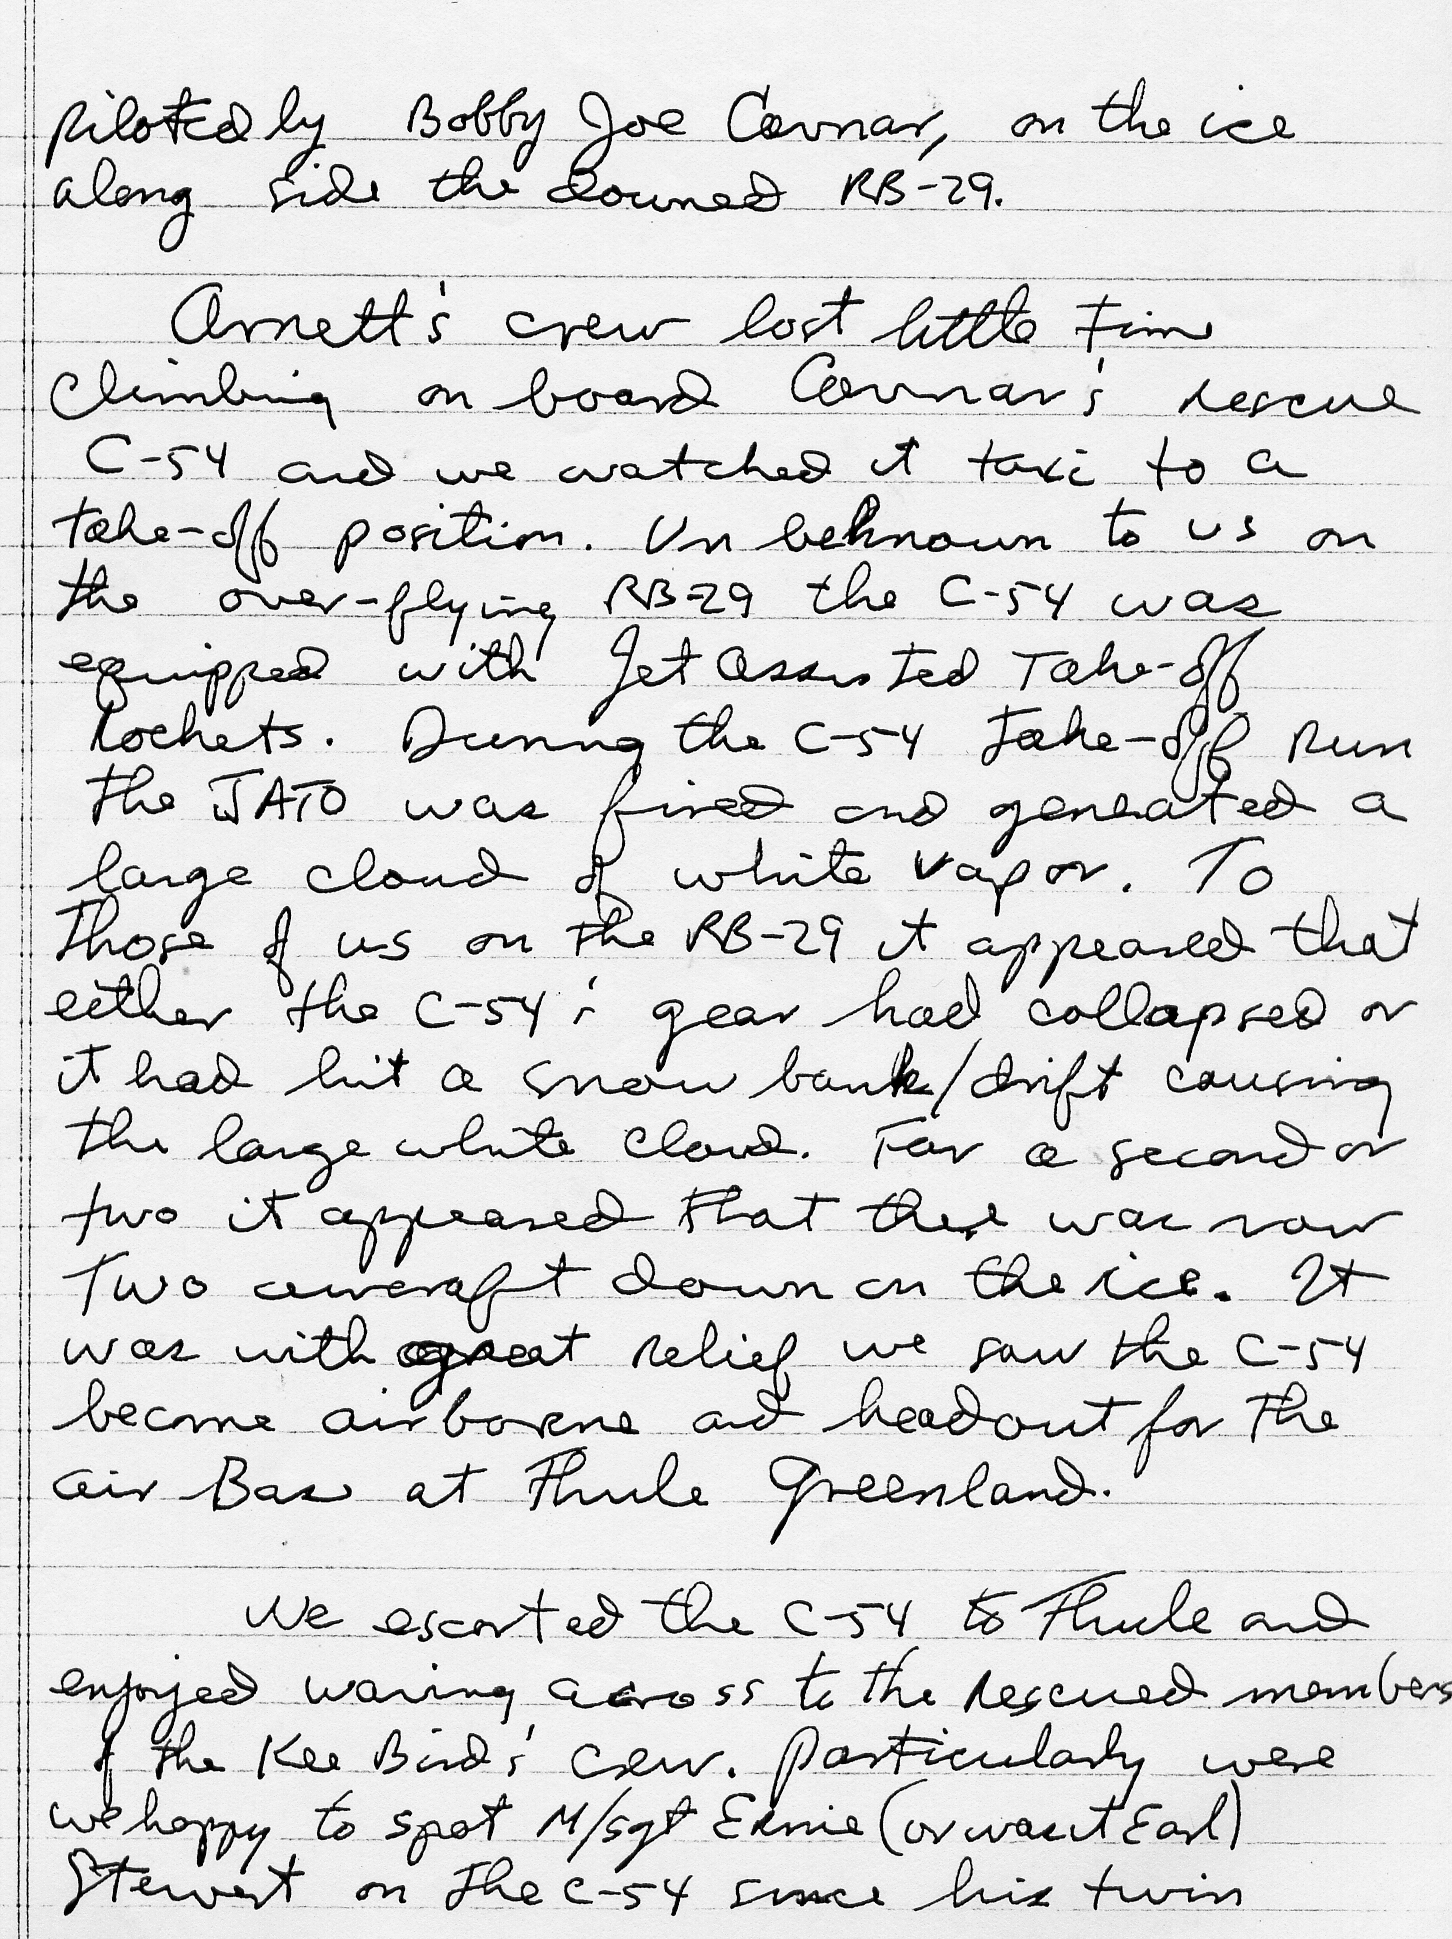 piloted by Bobby Joe Cavnar, on the ice
along side the downed RB-29.
Arnett's crew lost little time
climbing on board Cavnar's rescue
C-54 and we watched it taxi to a
take-off position. Un beknown to us on
the over-flying RB-29 the C-54 was
equipped with Jet Assisted Take-off
Rockets. During the C-54 take-off run
the JATO was fired and generated a
large cloud of white vapor. To
those of us on the RB-29 it appeared that
either the C-54's gear had collapsed or
it had hit a snow bank/drift causing
the large white cloud. For a second or
two it appeared that there was now
two aircraft down on the ice. It
was with great relief we saw the C-54
become airborne and head out for the
air Base at Thule Greenland.
We escorted the C-54 to Thule and
enjoyed waving across to the rescued members
of the Kee Bird's crew. Particularly were
we happy to spot M/sgt Ernie (or was it Earl)
Stewart on the C-54 since his twin